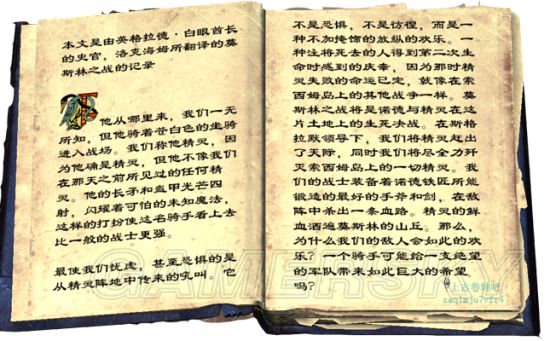 本文是由英格拉德·白眼酋长
的史官，洛克海姆所翻译的莫
斯林之战的记录
他从哪里来，我们一无
所知，但他骑着苍白色的坐骑
进入战场。我们称他精灵，因
为他确是精灵，但他不像我们
在那天之前所见过的任何精
灵。他的长矛和盔甲光芒四
射，闪耀着可怕的未知魔法，
这样的打扮使这名骑手看上去
比一般的战士更强。
最使我们忧虑，甚至恐惧的是
从精灵阵地中传来的吼叫。它
不是恐惧，不是彷徨，而是一
种不加掩饰的放纵的欢乐。一
种注将死去的人得到第二次生
命时感到的庆幸，因为那时精
灵失败的命运已定，就像在索
西姆岛上的其他战争一样。莫
斯林之战将是诺德与精灵在这
片土地上的生死决战。在斯格
拉默领导下，我们将精灵赶出
了天际，同时我们将尽全力歼
灭索西姆岛上的一切精灵。我
们的战士装备着诺德铁匠所能
锻造的最好的手斧和剑，在敌
阵中杀出一条血路。精灵的鲜
血洒遍莫斯林的山丘。那么，
为什么我们的敌人会如此的欢
乐？一个骑手可能给一支绝望
的军队带来如此巨大的希望
吗？
GAMERSKY
上古卷轴吧
zaq1mju7vfr4